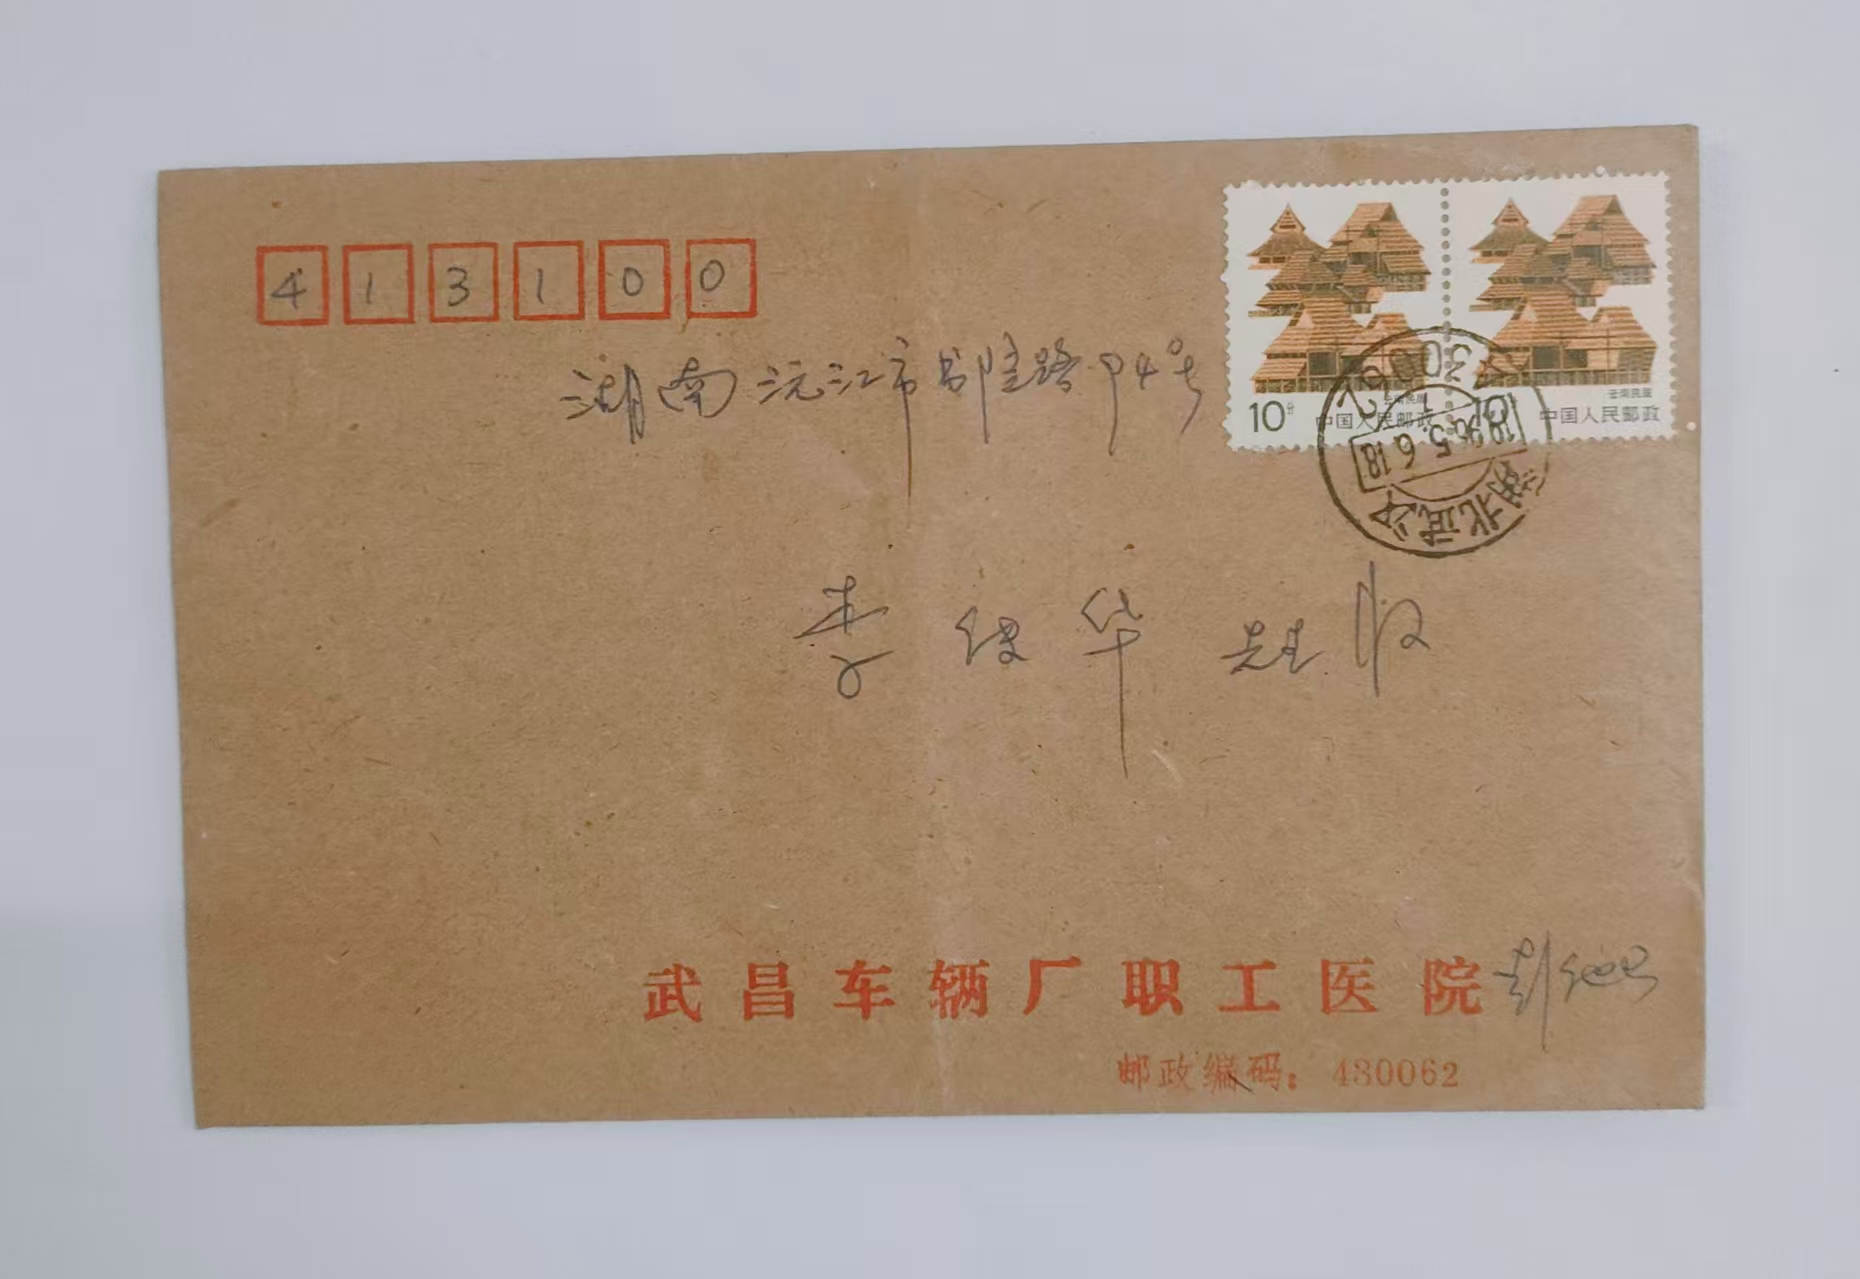 413100
湖南沅江市郃陞路94号
云南民居
云南民居
10分 中国人民邮政 10分 中国人民邮政
430062
1996.5.6.18
湖北武汉
李继华 先生收
武昌车辆厂职工医院
邮政编码：430062